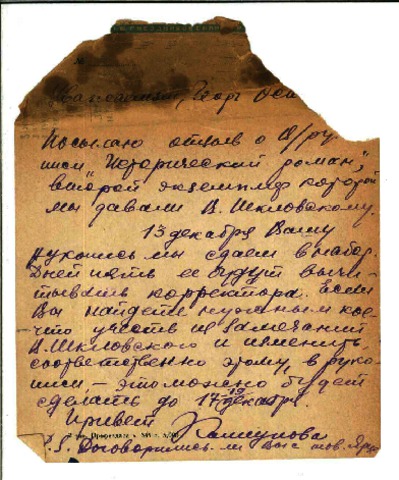 Уважаемый, Георг Ос
Посылаю отзыв о В/ру
писи "Исторический роман",
второй экземпляр которой
мы давали В. Шкловскому.
13 декабря Вашу
рукопись мы сдаем в набор.
Дней пять ее будут вычи-
тывать корректора. Если
Вы найдете нужным кое-
что учесть из замечаний
В. Шкловского и изменить,
соответственно этому, в руко-
писи, - это можно будет
сделать до 17-19 декабря.
Привет
P.S. Договорились ли Вы с тов.